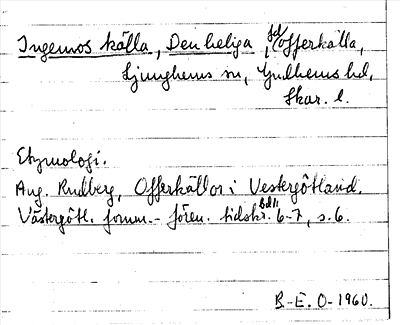 Ingemos källa, Den heliga, fd offerkälla,
Ljunghems sn, Gudhems hd,
Skar. l.
Etymologi.
Aug. Rudberg, Offerkällor i Vestergötland.
Västergötl. fornm.-fören. tidskr. bd 1: 6-7, s. 6.
B-E. O-1960.